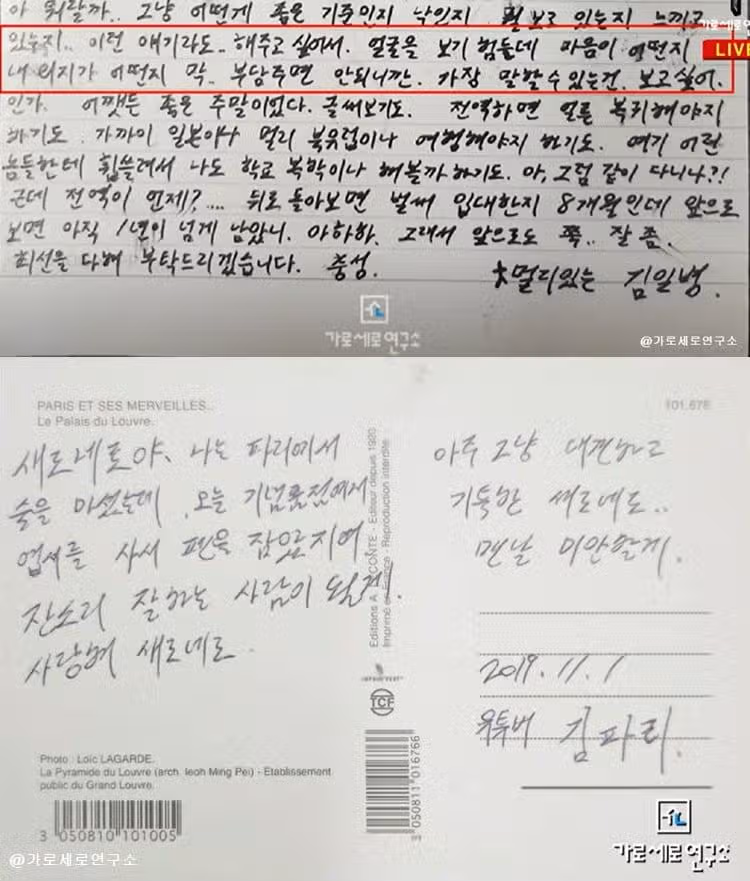 아 뭐랄까.. 그냥 어떻게 좋은 기준인지 낙인지 뭘 보고 있는지 느끼고
있는지.. 이런 얘기라도.. 해주고 싶어서. 얼굴을 보기 힘든데 마음이 어떤지
내 의지가 어떤지 막.. 부담주면 안되니깐. 가장 말할 수 있는건. 보고싶어.
인가. 어쨋든 좋은 주말이었다. 글써보기도. 전역하면 얼른 복귀해야지
하기도. 가까이 일본이나 멀리 북유럽이나 여행해야지 하기도. 여기 어린
놈들한테 휩쓸려서 나도 학교 복학이나 해볼까 하기도. 아, 그럼 같이 다니나?!
근데 전역이 언제?.... 뒤로 돌아보면 벌써 입대한지 8개월인데 앞으로
보면 아직 1년이 넘게 남았니. 아하하. 그래서 앞으로도 쭉.. 잘 좀.
최선을 다해 부탁드리겠습니다. 충성.
멀리있는 김일병.
가로세로연구소
LIVE
가로세로연구소
@가로세로연구소
PARIS ET SES MERVEILLES..
Le Palais du Louvre.
101.678
새로네로야, 나는 파리에서
술을 마셨는데, 오늘 기념품점에서
엽서를 사서 펜을 잡았지여.
잔소리 잘하는 사람이 될게.
사랑혀 새로네로.
Photo : Loïc LAGARDE.
La Pyramide du Louvre (arch. Ieoh Ming Pei) - Etablissement
public du Grand Louvre.
3 050810 101005
@가로세로연구소
Editeur depuis 1920
Reproduction interdite
TCF
3 050811 016766
아주 그냥 대견하고
기특한 새로네로..
맨날 미안할게.
2019. 11. 1
유튜버 김파리.
가로세로연구소